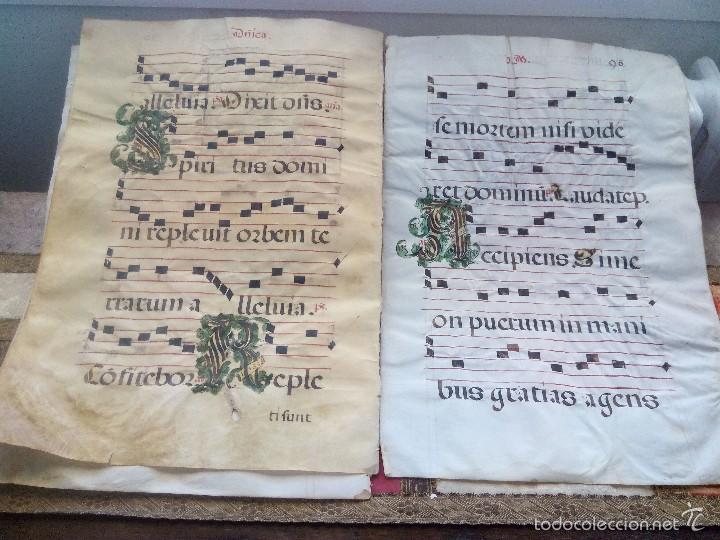 Dñica.
alleluia. Dixit dñs.
Spiri tus domi
ni repleuit orbem te
rrarum a lleluia. ps.
Cōfitebor Reple
ti sunt
98
se mortem nisi vide
ret dominū. Laudate p.
Accipiens Sime
on puerum in mani
bus gratias agens
todocoleccion.net